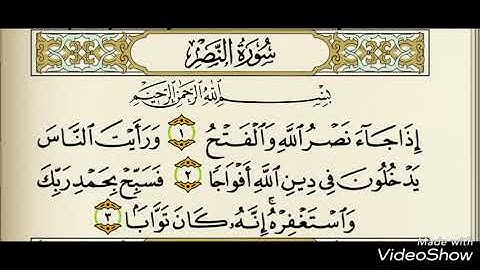 سُورَةُ النَّصْرِ
بِسْمِ اللَّهِ الرَّحْمَٰنِ الرَّحِيمِ
إِذَا جَآءَ نَصْرُ ٱللَّهِ وَٱلْفَتْحُ ١ وَرَأَيْتَ ٱلنَّاسَ
يَدْخُلُونَ فِي دِينِ ٱللَّهِ أَفْوَاجًا ٢ فَسَبِّحْ بِحَمْدِ رَبِّكَ
وَٱسْتَغْفِرْهُ ۚ إِنَّهُۥ كَانَ تَوَّابًۢا ٣
Made with
VideoShow